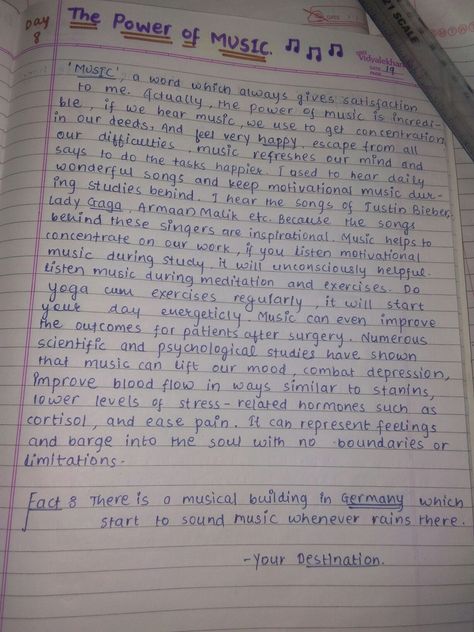 Day 8
The Power of MUSIC.
Vidyalekhan
DATE
PAGE 19
21 SCALE
'MUSIC', a word which always gives satisfaction
to me. Actually, the power of music is incredi-
ble, if we hear music, we use to get concentration
in our deeds, And feel very happy, escape from all
our difficulties, music refreshes our mind and
says to do the tasks happier. I used to hear daily
wonderful songs and keep motivational music dur-
ing studies behind. I hear the songs of Justin Bieber,
Lady Gaga, Armaan Malik etc. Because the songs
behind these singers are inspirational. Music helps to
concentrate on our work, if you listen motivational
music during study, it will unconsciously helpful.
Listen music during meditation and exercises. Do
yoga cum exercises regularly, it will start
your day energeticly. Music can even improve
the outcomes for patients after surgery. Numerous
scientific and psychological studies have shown
that music can lift our mood, combat depression,
improve blood flow in ways similar to stanins,
lower levels of stress-related hormones such as
cortisol, and ease pain. It can represent feelings
and barge into the soul with no boundaries or
limitations.
Fact 8 There is a musical building in Germany which
start to sound music whenever rains there.
-Your Destination.